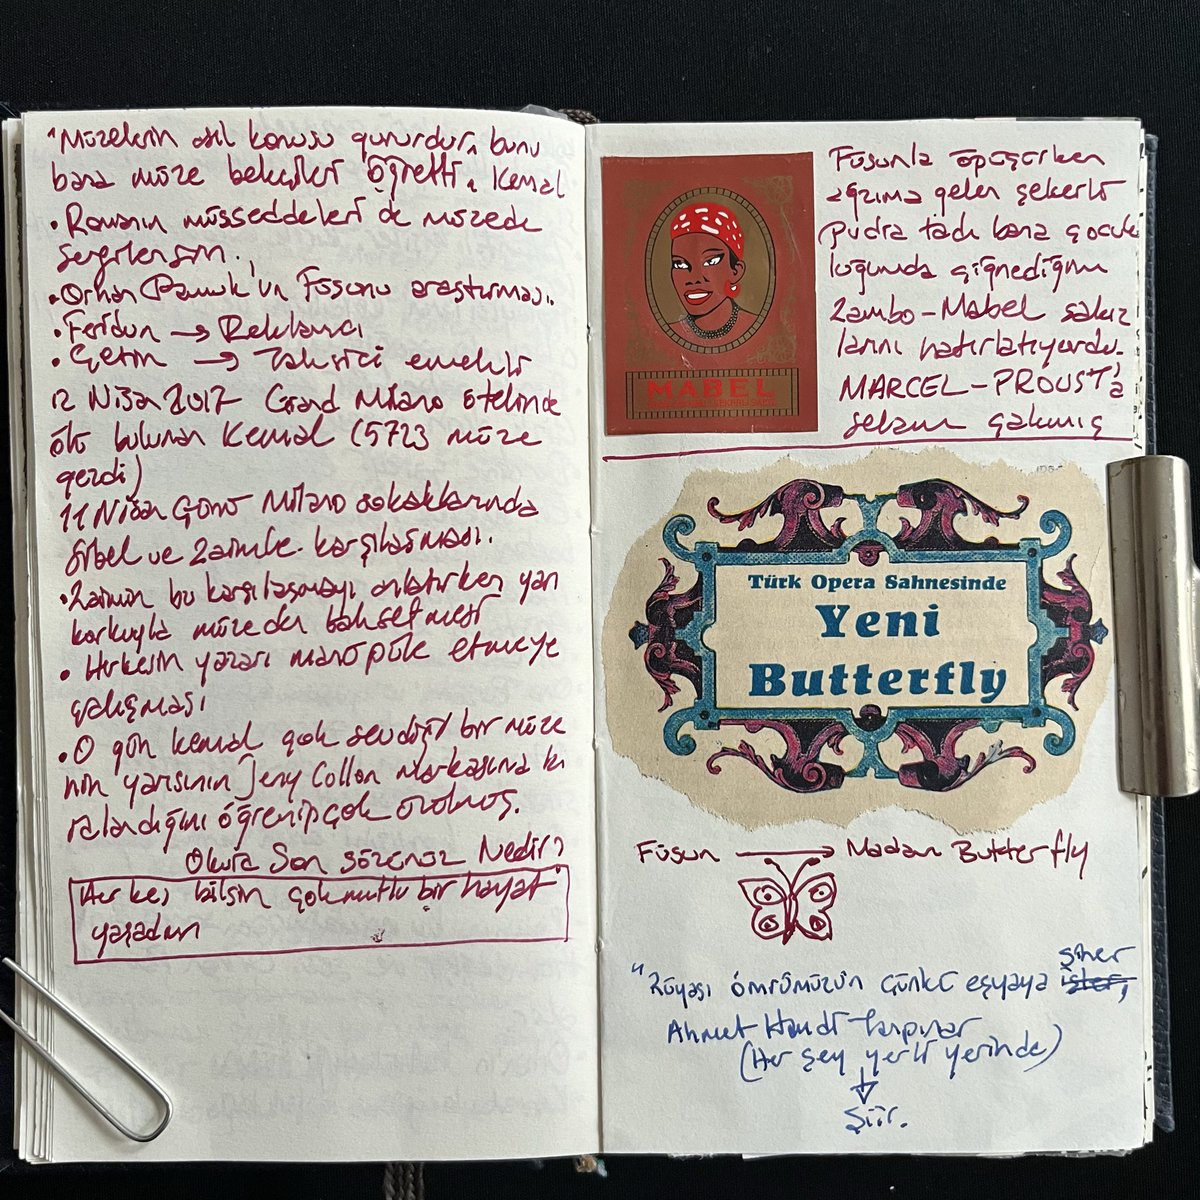 "Müzelerin asıl konusu gururdur" bunu
bana müze bekçileri öğretti, Kemal
• Romanın müsveddeleri de müzede
sergilensin.
• Orhan Pamuk'un Füsunu araştırması.
• Feridun → Reklamcı
• Çetin → Taksici emekli
12 Nisan 2017 Grand Milano otelinde
ölü bulunan Kemal (5723 müze
gezdi)
11 Nisan Günü Milano sokaklarında
Sibel ve Zaimle karşılaşması.
• Zaimin bu karşılaşmayı anlatırken yarı
korkuyla müzeden bahsetmesi
• Herkesin yazarı manüpüle etmeye
çalışması
• O gün Kemal çok sevdiği bir müze
nin yarısının Jeny Collon Markasına ki
ralandığını öğrenip çok üzülmüş.
Okura Son sözünüz Nedir?
Herkes bilsin çok mutlu bir hayat
yaşadım
Füsunla öpüşürken
ağzıma gelen şekerli
pudra tadı bana çocuk
luğumda çiğnediğim
Zambo-Mabel sakız
larını hatırlatıyordu.
MARCEL-PROUST'a
selam çakmış
MABEL
Türk Opera Sahnesinde
Yeni
Butterfly
Füsun → Madam Butterfly
siner
"Rüyası ömrümüzün çünkü eşyaya işler,
Ahmet Hamdi Tanpınar
(Her şey yerli yerinde)
↓
Şiir.